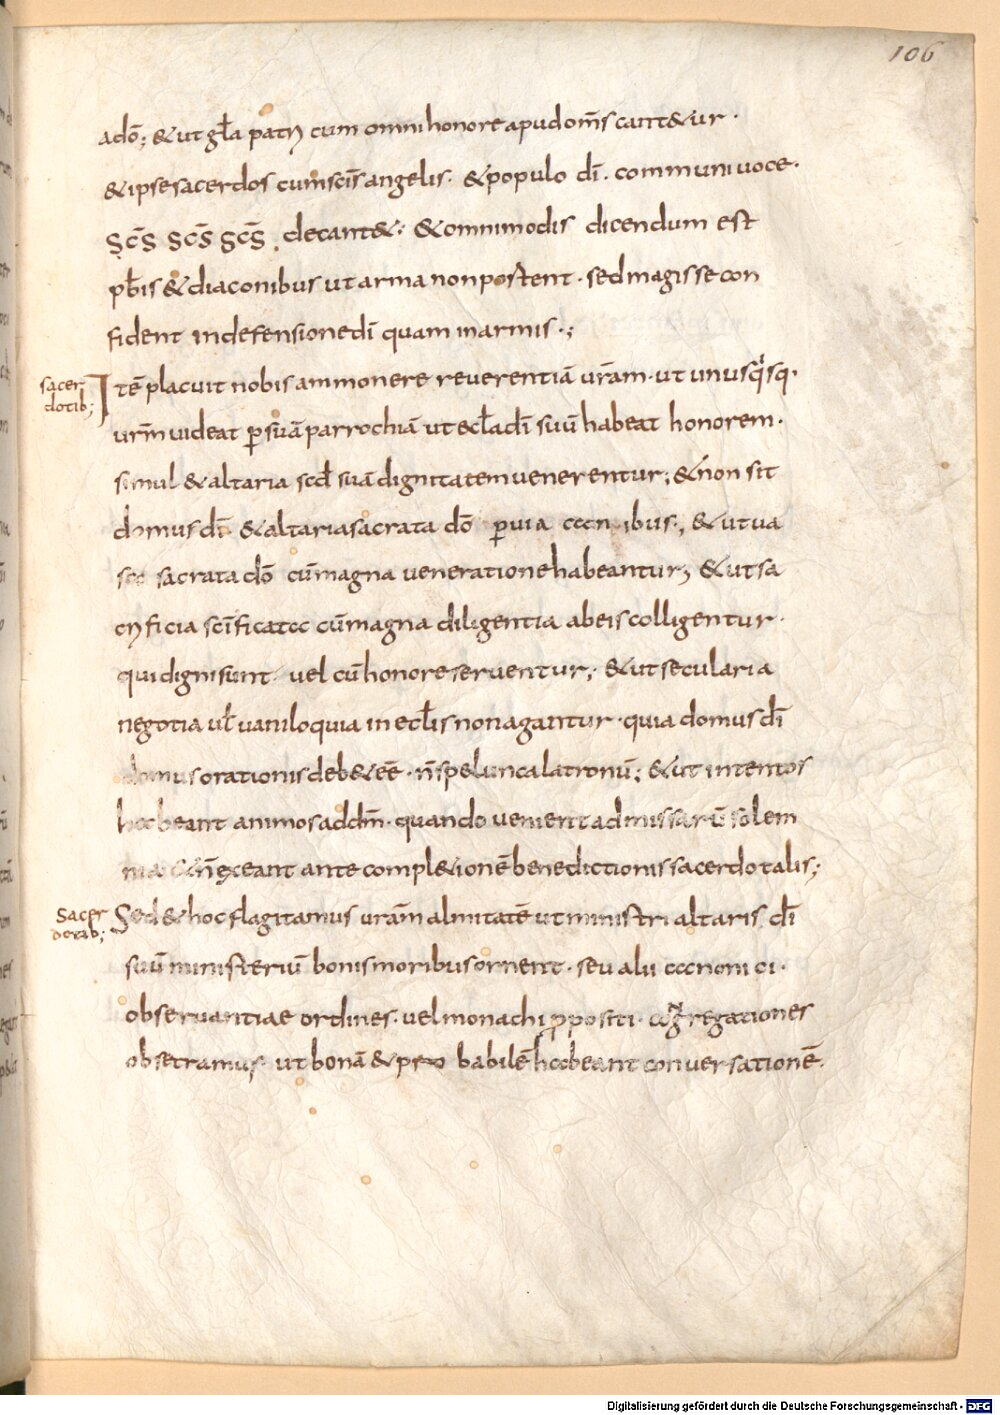 106
adō; & ut gła patrȝ cum omni honore apud oms̄ cant&ur ·
& ipse sacerdos cum sc̄is angelis · & populo dī · communi uoce ·
Sc̄s Sc̄s Sc̄s · decant&; & omnimodis dicendum est
pb̄is & diaconibus ut arma non portent · sed magis se con
fident in defensione dī quam in armis · ;
sacer
dotib;
Itē placuit nobis ammonere reuerentiā ur̄am · ut unusq̇sq·
ur̄m uideat ꝑ suā parrochiā ut ecłā dī suū habeat honorem ·
simul & altaria scd̄ suā dignitatem uenerentur; & non sit
domus dī · & altaria sacrata dō ꝑuia canibus ·, & ut ua
sa sacrata dō cū magna ueneratione habeantur; & ut sa
crificia sc̄ificata cū magna diligentia ab eis colligentur ·
qui digni sunt · uel cū honore seruentur; & ut secularia
negotia uł uaniloquia in ecłis non agantur · quia domus dī
domus orationis deb& eē · n̄ spelunca latronū; & ut intentos
habeant animos ad dm̄ · quando uenient ad missarū solem
nia & n̄ exeant ante compl&ionē benedictionis sacerdotalis;
Sacer
dotib;
Sed & hoc flagitamus ur̄am almitatē ut ministri altaris dī
suū ministeriū bonis moribus ornent · seu alii canonici ·
obseruantiae ordines · uel monachi ꝓpositi · congregationes
obsecramus · ut bonā & probabilē habeant conuersationē ·
Digitalisierung gefördert durch die Deutsche Forschungsgemeinschaft - DFG